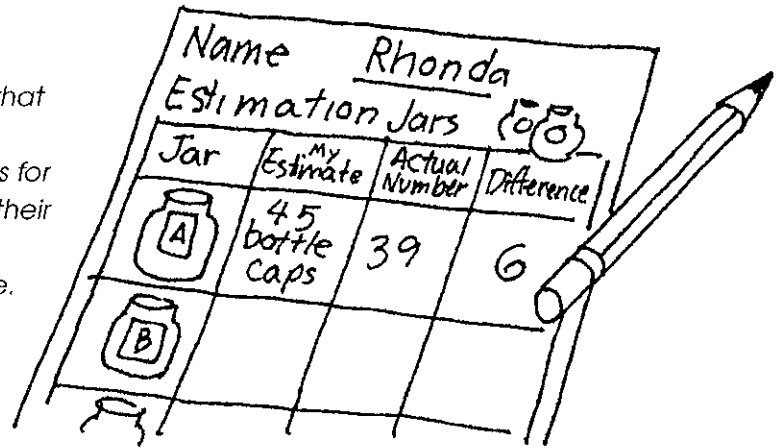 that
s for
their
e.
Name Rhonda
Estimation Jars
Jar My Estimate Actual Number Difference
A 45 bottle caps 39 6
B